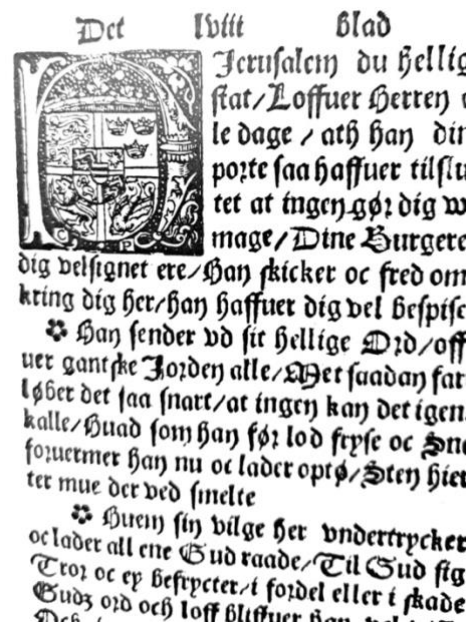 Det lviii Blad
Jerusalem du hellig
stat/Loffuer Herren
le dage / ath han din
porte saa haffuer tilslu
tet at ingen gør dig w
mage/Dine Burgere
dig velsignet ere/Han skicker oc fred om
kring dig her/han haffuer dig vel bespisc
Han sender vd sit hellige Ord/off
uer gantske Jorden alle/Met saadan far
løber det saa snart/at ingen kan det igen
kalle/Huad som han før lod fryse oc Sne
foruermer han nu oc lader optø/Sten hier
ter mue der ved smelte
Huem sin vilge her vndertrycker
oc lader all ene Gud raade/Til Gud sig
Tror oc ey befrycter/i fordel eller i skade
Gudz ord och loff bliffuer